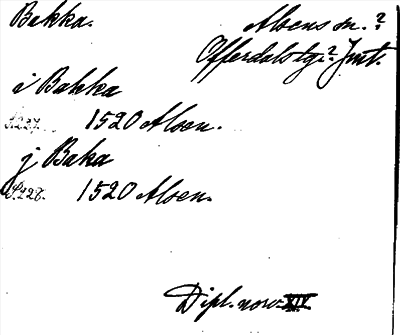 Bakka. Alsens sn.?
Offerdals tgs? Jmt.
i Bakka
S. 227. 1520 Alsen.
j Baka
S. 228. 1520 Alsen.
Dipl. norv. XIV